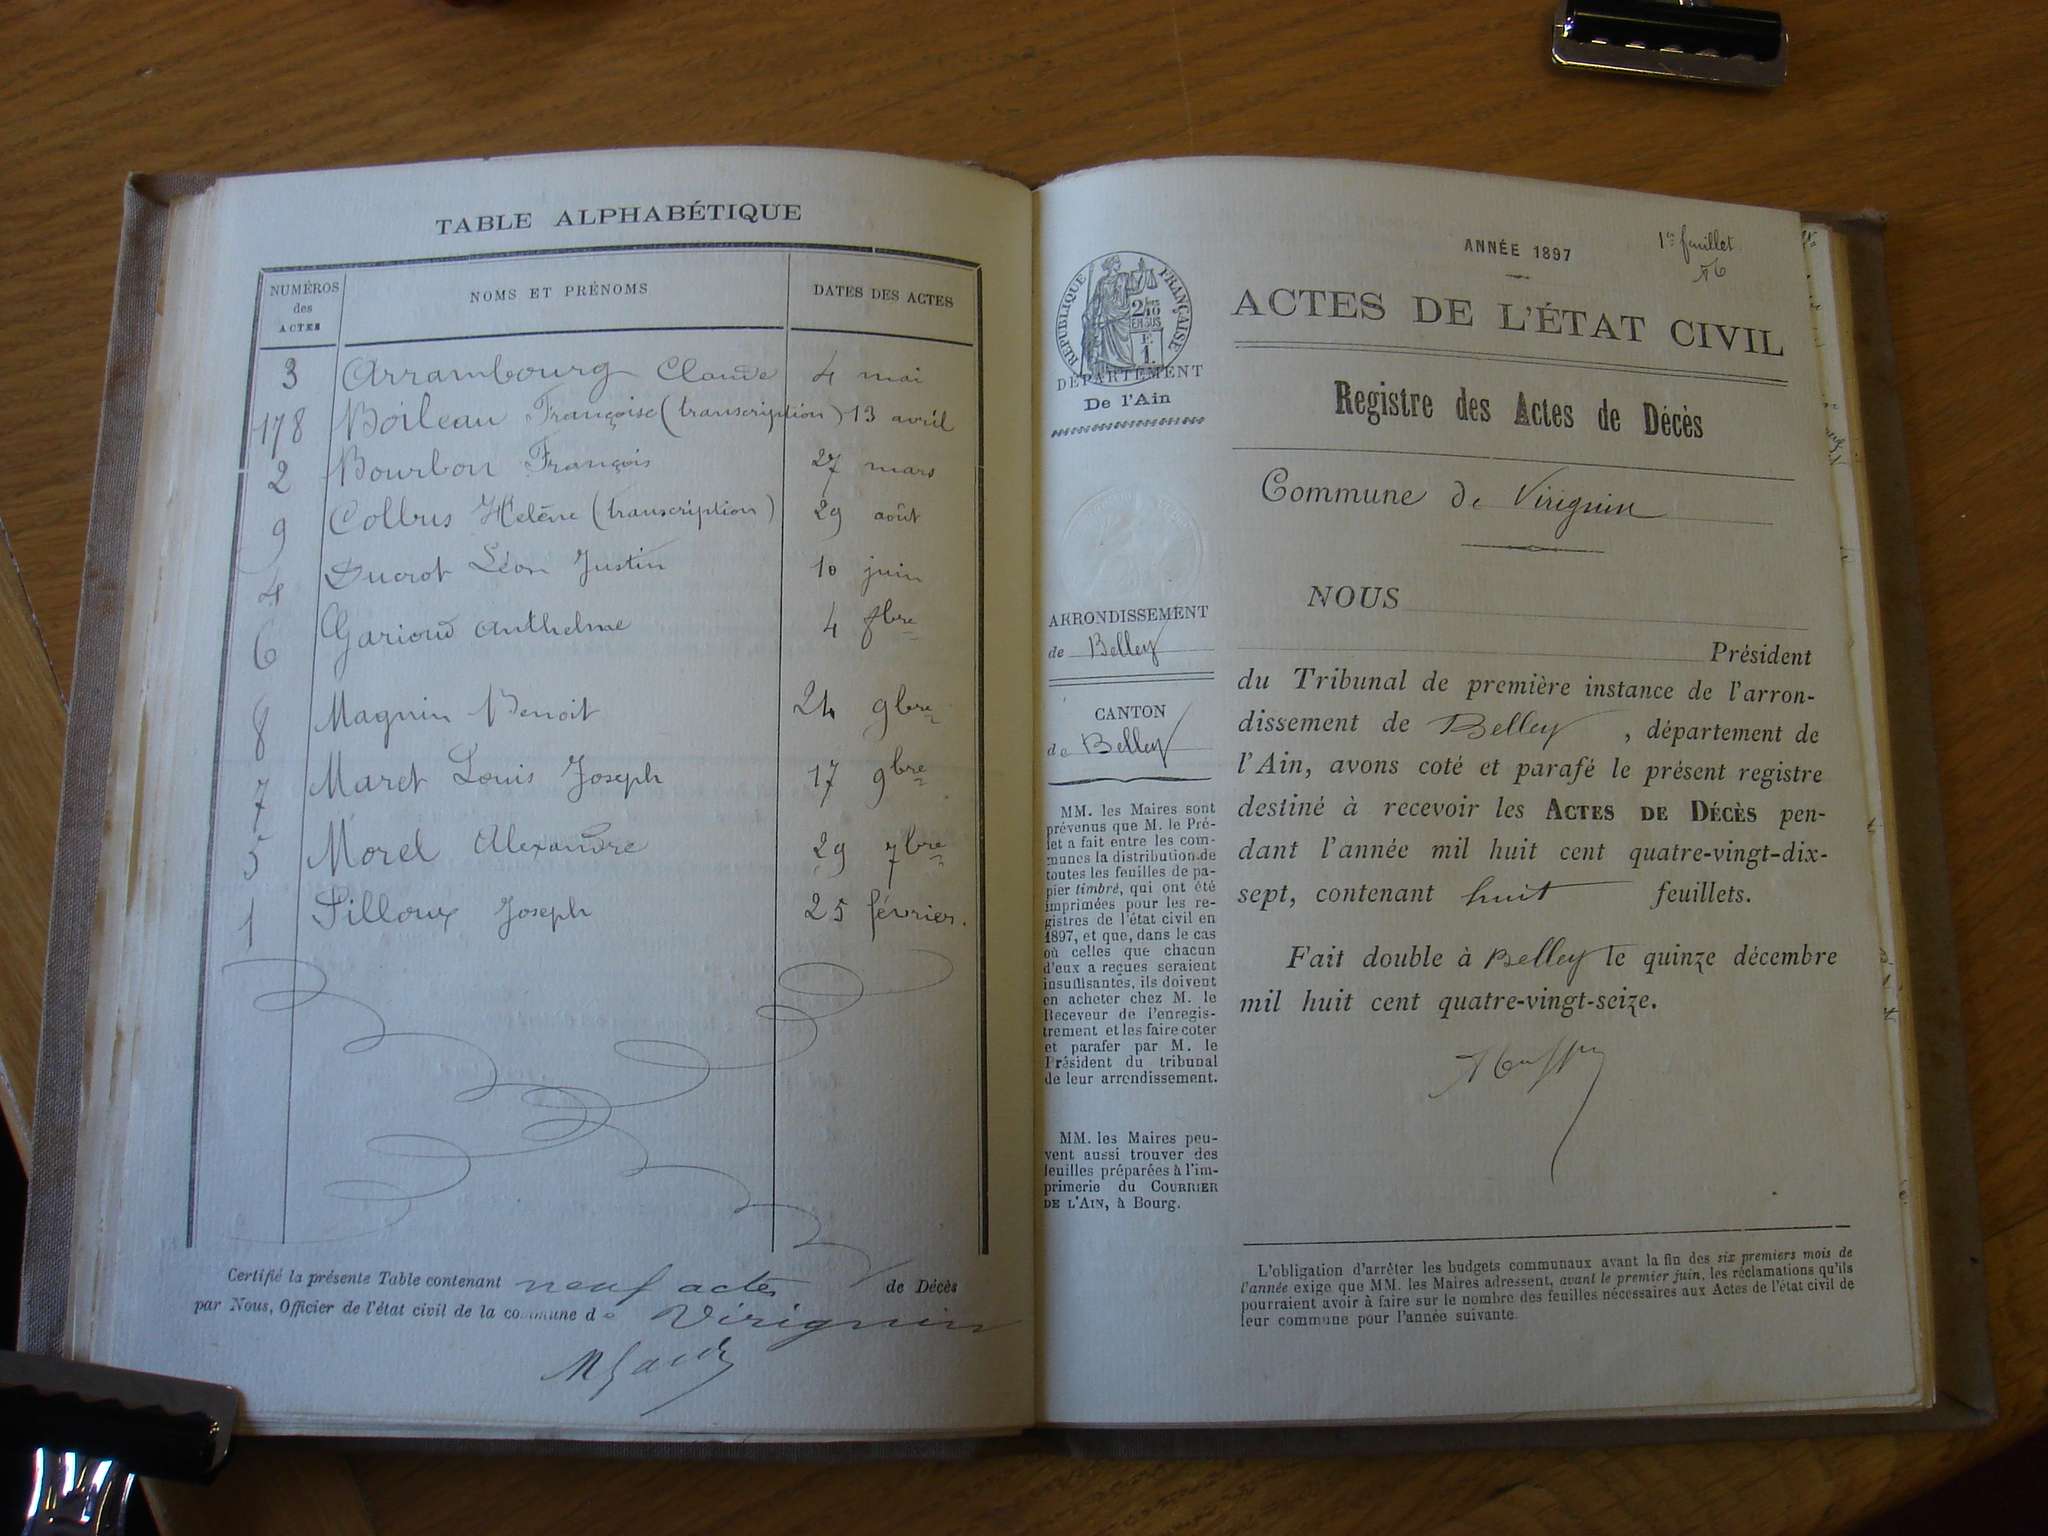 TABLE ALPHABÉTIQUE
NUMÉROS des ACTES
NOMS ET PRÉNOMS
DATES DES ACTES
3 Arrambourg Claude 4 mai
178 Boileau Françoise (transcription) 13 avril
2 Bourbon François 27 mars
9 Collus Hélène (transcription) 29 août
4 Ducrot Léon Justin 10 juin
6 Garioud Anthelme 4 8bre
8 Magnin Benoit 24 9bre
7 Maret Louis Joseph 17 9bre
5 Morel Alexandre 29 7bre
1 Pilloux Joseph 25 février.
Certifié la présente Table contenant neuf actes de Décès
par Nous, Officier de l'état civil de la commune de Virignin
ANNÉE 1897
1er feuillet
RÉPUBLIQUE FRANÇAISE
2/10 EN SUS
F.
1.
DÉPARTEMENT
De l'Ain
ARRONDISSEMENT
de Belley
CANTON
de Belley
MM. les Maires sont
prévenus que M. le Pré-
fet a fait entre les com-
munes la distribution de
toutes les feuilles de pa-
pier timbré, qui ont été
imprimées pour les re-
gistres de l'état civil en
1897, et que, dans le cas
où celles que chacun
d'eux a reçues seraient
insuffisantes, ils doivent
en acheter chez M. le
Receveur de l'enregis-
trement et les faire coter
et parafer par M. le
Président du tribunal
de leur arrondissement.
MM. les Maires peu-
vent aussi trouver des
feuilles préparées à l'im-
primerie du COURRIER
DE L'AIN, à Bourg.
ACTES DE L'ÉTAT CIVIL
Registre des Actes de Décès
Commune de Virignin
NOUS
Président
du Tribunal de première instance de l'arron-
dissement de Belley, département de
l'Ain, avons coté et parafé le présent registre
destiné à recevoir les ACTES DE DÉCÈS pen-
dant l'année mil huit cent quatre-vingt-dix-
sept, contenant huit feuillets.
Fait double à Belley le quinze décembre
mil huit cent quatre-vingt-seize.
L'obligation d'arrêter les budgets communaux avant la fin des six premiers mois de
l'année exige que MM. les Maires adressent, avant le premier juin, les réclamations qu'ils
pourraient avoir à faire sur le nombre des feuilles nécessaires aux Actes de l'état civil de
leur commune pour l'année suivante.